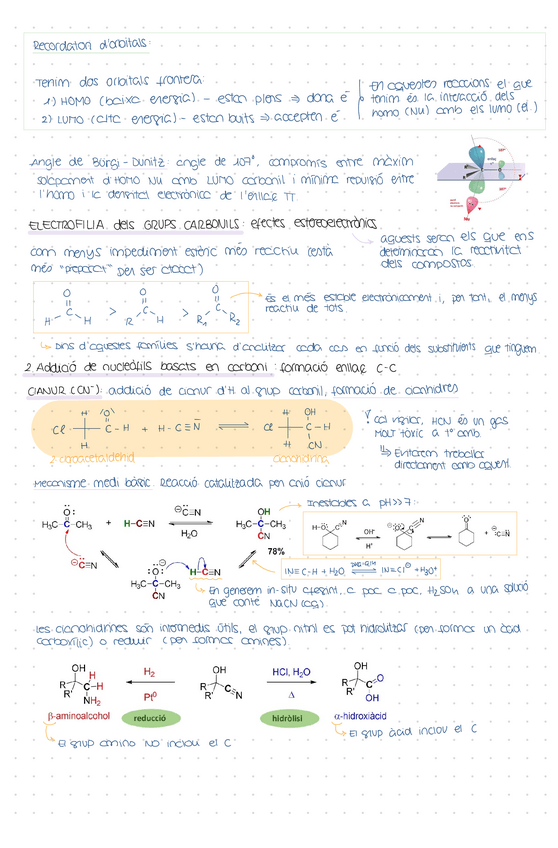 Recordation d'orbitals:
Tenim dos orbitals frontera:
1) HOMO (baixa energia) - estan plens ⇒ dona é
2) LUMO (alta energia) - estan buits ⇒ accepten é.
En aquestes reaccions el que
tenim és la interacció dels
homo (Nu) amb els lumo (el.)
Angle de Bürgi-Dunitz: angle de 107°, compromís entre màxim
solapament d'HOMO Nu amb LUMO carbonil i mínima repulsió entre
l'homo i la densitat electrònica de l'enllaç π.
Nu
ELECTROFILIA dels GRUPS CARBONILS: efectes estereoelectrònics
aquests seran els que ens
determinaran la reactivitat
dels compostos
com menys impediment estèric més reactiu (està
més "preparat" per ser atacat)
O O O
H C H > R C H > R₁ C R₂
és el més estable electrònicament i, per tant, el menys
reactiu de tots.
Dins d'aquestes famílies s'haurà d'avaluar cada cas en funció dels substituents que tinguem
2. Addició de nucleòfils basats en carboni: formació enllaç C-C
CIANUR (CN⁻): addició de cianur d'H al grup carbonil, formació de cianhidrines
H O
Cl C - H + H - C ≡ N ⇌ Cl C - H
H
H OH
H CN
2-cloroacetaldehid
cianohidrina
! cal vigilar, HCN és un gas
MOLT tòxic a tª amb.
⇒ Evitarem treballar
directament amb aquest
Mecanisme: medi bàsic. Reacció catalitzada per anió cianur
H₃C C CH₃ + H-C≡N ⇌ H₃C C CH₃
O: ⊖C≡N OH
H₂O CN
78%
⊖:C≡N
:O:⊖ H-C≡N
H₃C C CH₃
CN
Inestables a pH>>7:
H-O CN OH⁻ H⁺ O CN O + ⊖:C≡N
N≡C-H + H₂O ⇌ N≡C⊖ + H₃O⁺
En generem in-situ afegint, a poc a poc, H₂SO₄ a una solució
que conté NaCN (aq).
Les cianohidrines són intermedis útils, el grup nitril es pot hidrolitzar (per formar un àcid
carboxílic) o reduir (per formar amines).
OH H H₂ OH HCl, H₂O OH
R R' C H Pt⁰ R R' C N Δ R R' C O
NH₂ OH
β-aminoalcohol reducció hidròlisi α-hidroxiàcid
El grup amino NO inclou el C
El grup àcid inclou el C